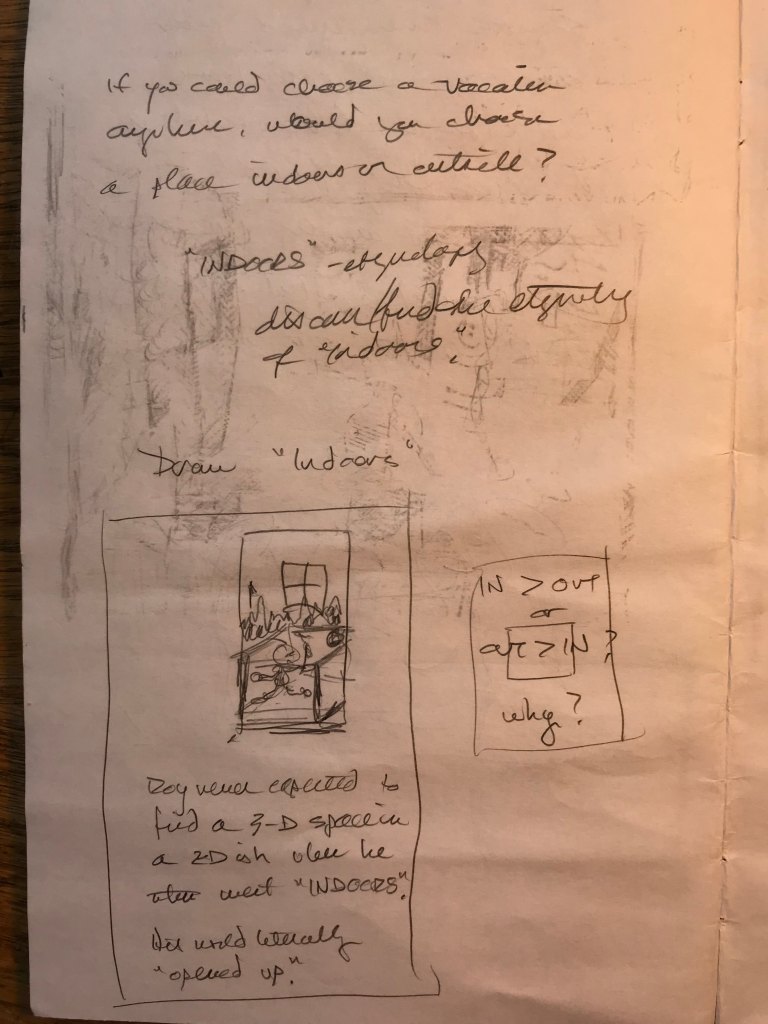 If you could choose a vacation
anywhere, would you choose
a place indoors or outside?
"INDOORS" - etymology
discuss/find the etymology
of "indoors".
Draw "Indoors"
IN > OUT
or
OUT > IN ?
why?
Roy never expected to
find a 3-D space in
a 2D ish when he
went "INDOORS".
His world literally
"opened up."